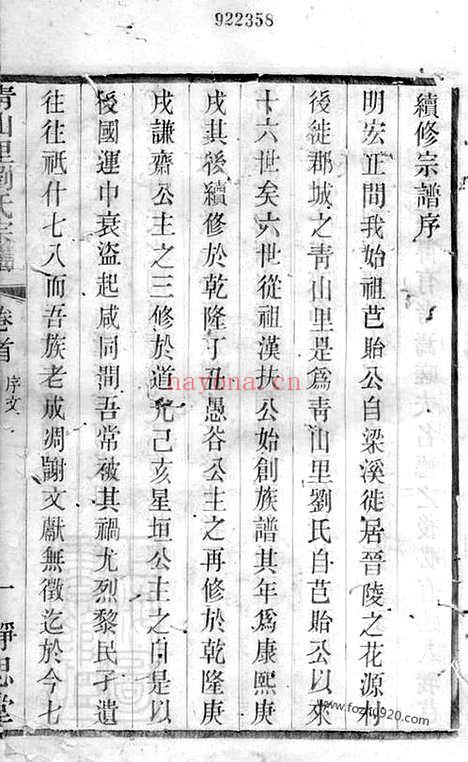 922358
續修宗譜序
明宏正間我始祖芑貽公自梁溪徙居晉陵之花源利
後徙郡城之靑山里是爲靑山里劉氏自芑貽公以來
十六世矣六世從祖漢扶公始創族譜其年爲康熙庚
戌其後續修於乾隆丁丑愚谷公主之再修於乾隆庚
戌謙齋公主之三修於道光己亥星垣公主之自是以
後國運中衰盜起咸同間吾常被其禍尤烈黎民孑遺
往往祇什七八而吾族老成凋謝文獻無徵迄於今七
靑山里劉氏宗譜
卷首 序文 一 靜思堂
hayouna.cn
www.foxs920.com